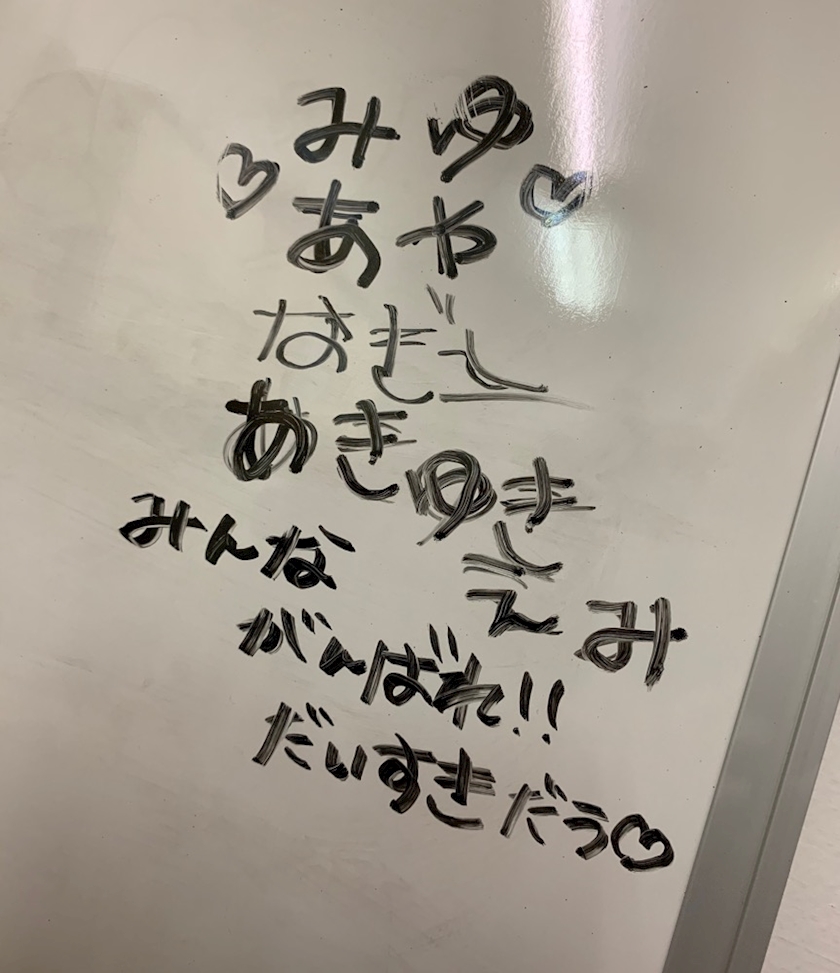 みゆ
♡ あや ♡
なぎと
あきゆき
と
えみ
みんな
がんばれ!!
だいすきだう♡